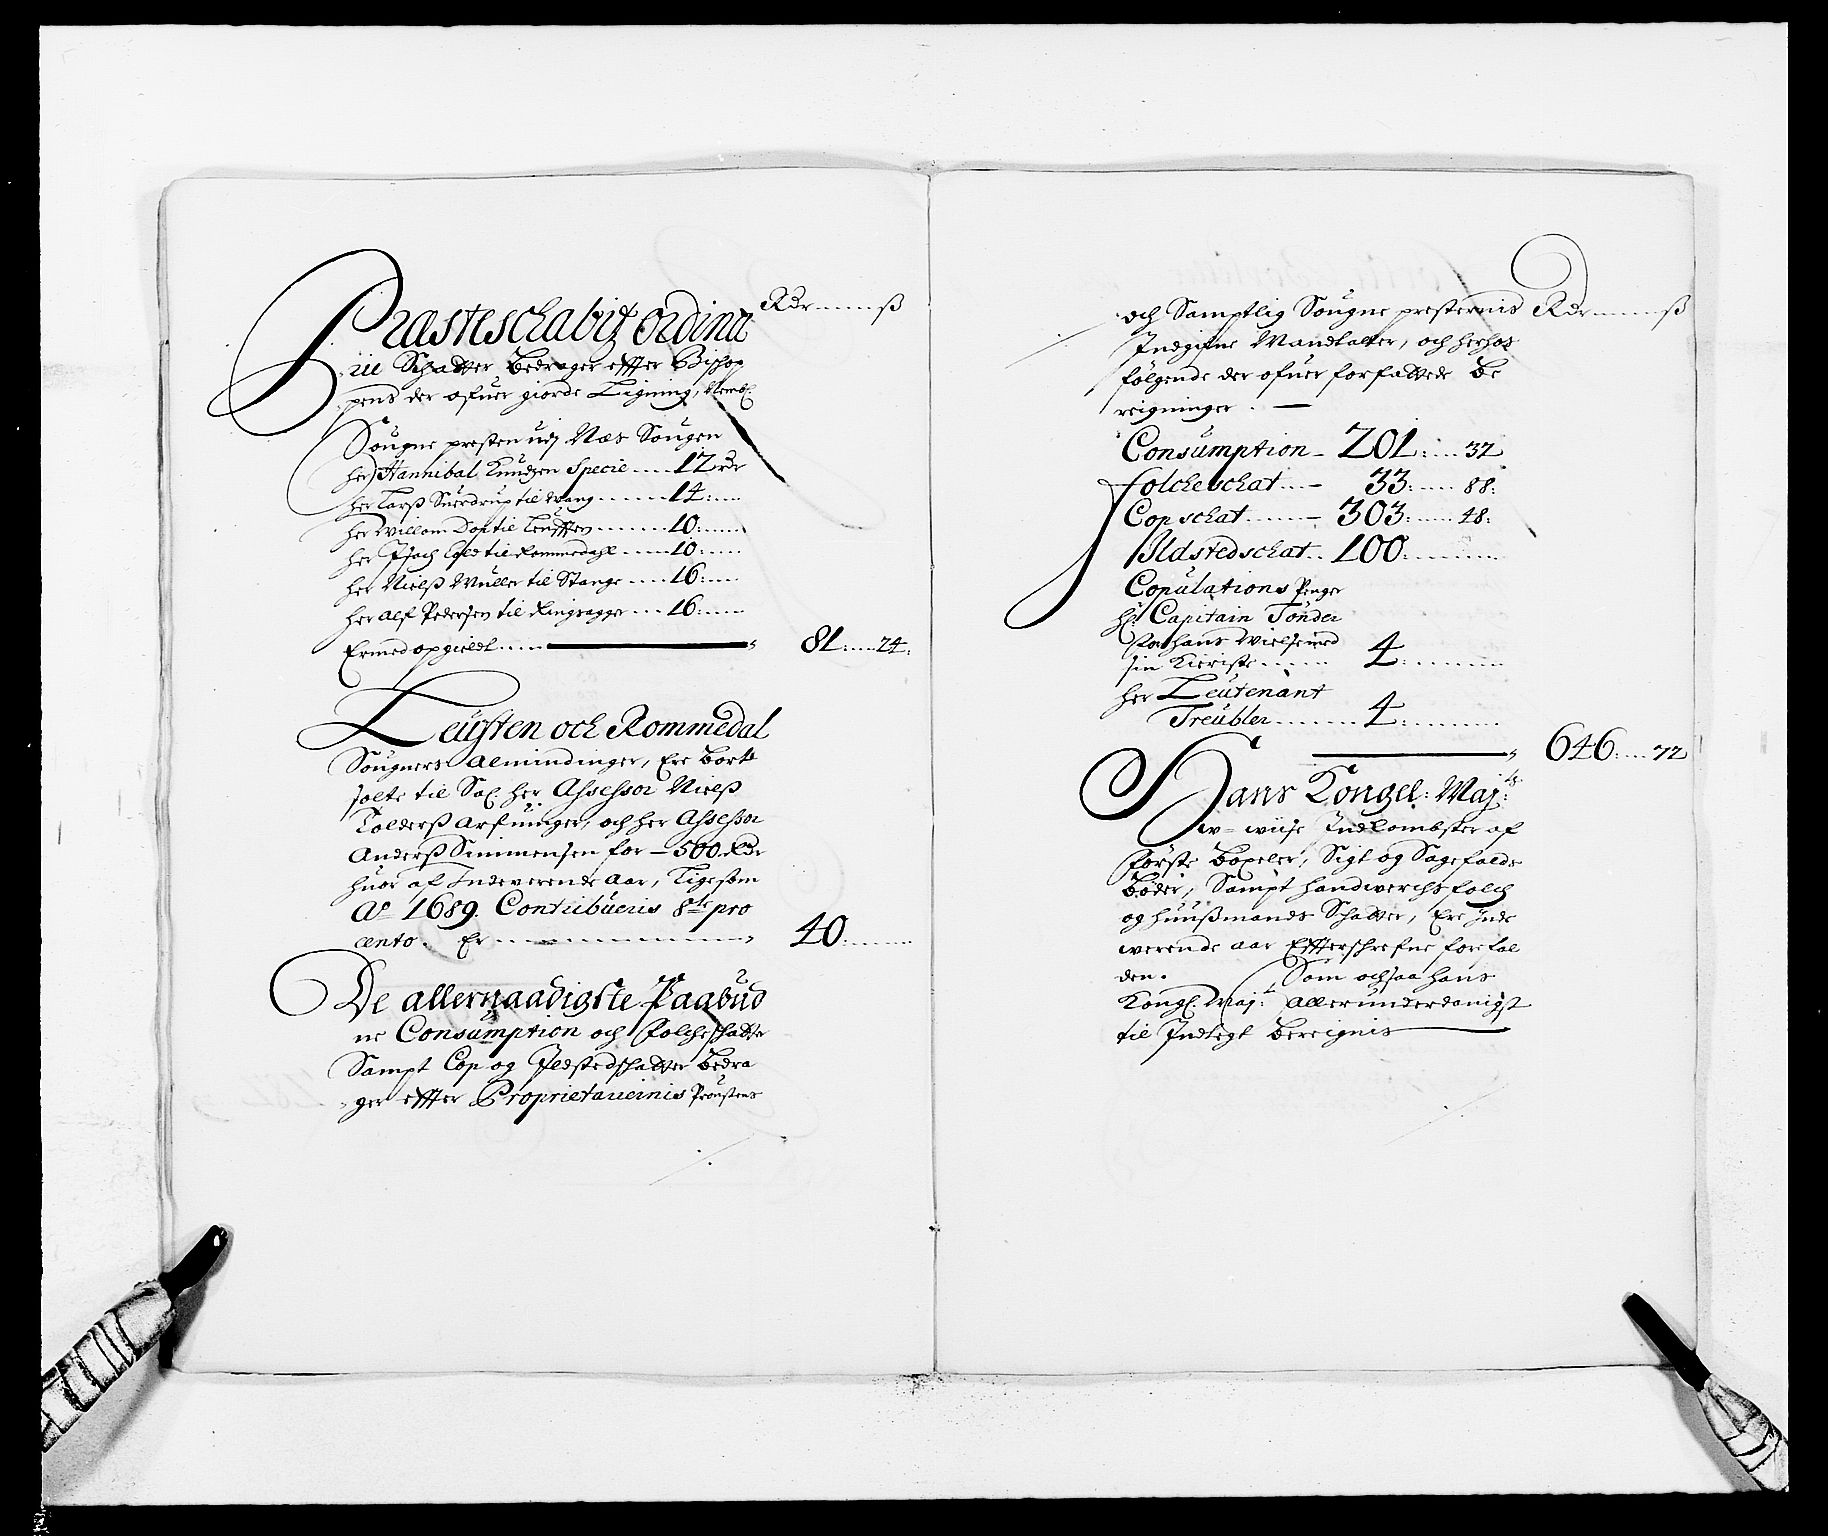 Præsteschabitz Ordina Rdr ß
rii Schatter Bedrager effter Bischop
pens der ofuer giorde Ligning, Nembl:
Sougne presten udj Næs Sougen
her Hannibal Knudtzen Specie 12 rdr
her Larß Suerdrup til Wang 14:
her Willom Dop til Leuften 10:
her Isach til Rommedahl 10:
her Nielß Muller til Stange 16:
her Alf Pedersen til Ringsagger 16:
Ermed opgieldt 81: 24:
Leusten och Rommedal
Sougners Almindinger, Ere bort
solte til Sal: her Assessor Nielß
Tolderß Arfuinger, och her Assessor
Anderß Simmensen for 500 Rdr
huor af Indeverende Aar, Ligesom
Ao 1689. Contribueris 8te pro
cento. Er 40:
De allernaadigste Paabud
ne Consumption och Folcheschatte
Sampt Cop og Ildstedschatter Bedra
ger effter Proprietaiernis Proustens
och Samptlig Sougne presternis Rdr ß
Indgifne Mandtalter, och herhos
følgende der ofuer forfattede Be
reigninger.
Consumption 201: 32
Folcheschat 33: 88:
Copschat 303: 48:
Ildstedschat 100:
Copulations Penger
Hr: Capitain Tønder
for hans Vielse med
sin Kieriste 4:
her Leutenant
Treubler 4:
646: 72
Hans Kongel: Majts:
w-wiise Indkombster af
første Bøxeler, Sigt og Sagefalds
Bøder, Sampt handwerchs folch
og huußmands Schatter, Ere Inde
werende aar Effterschrefne forefal
den. Som ochsaa hans
Kongl: Maj:t allerunderdanigst
til Indtegt Bereignis